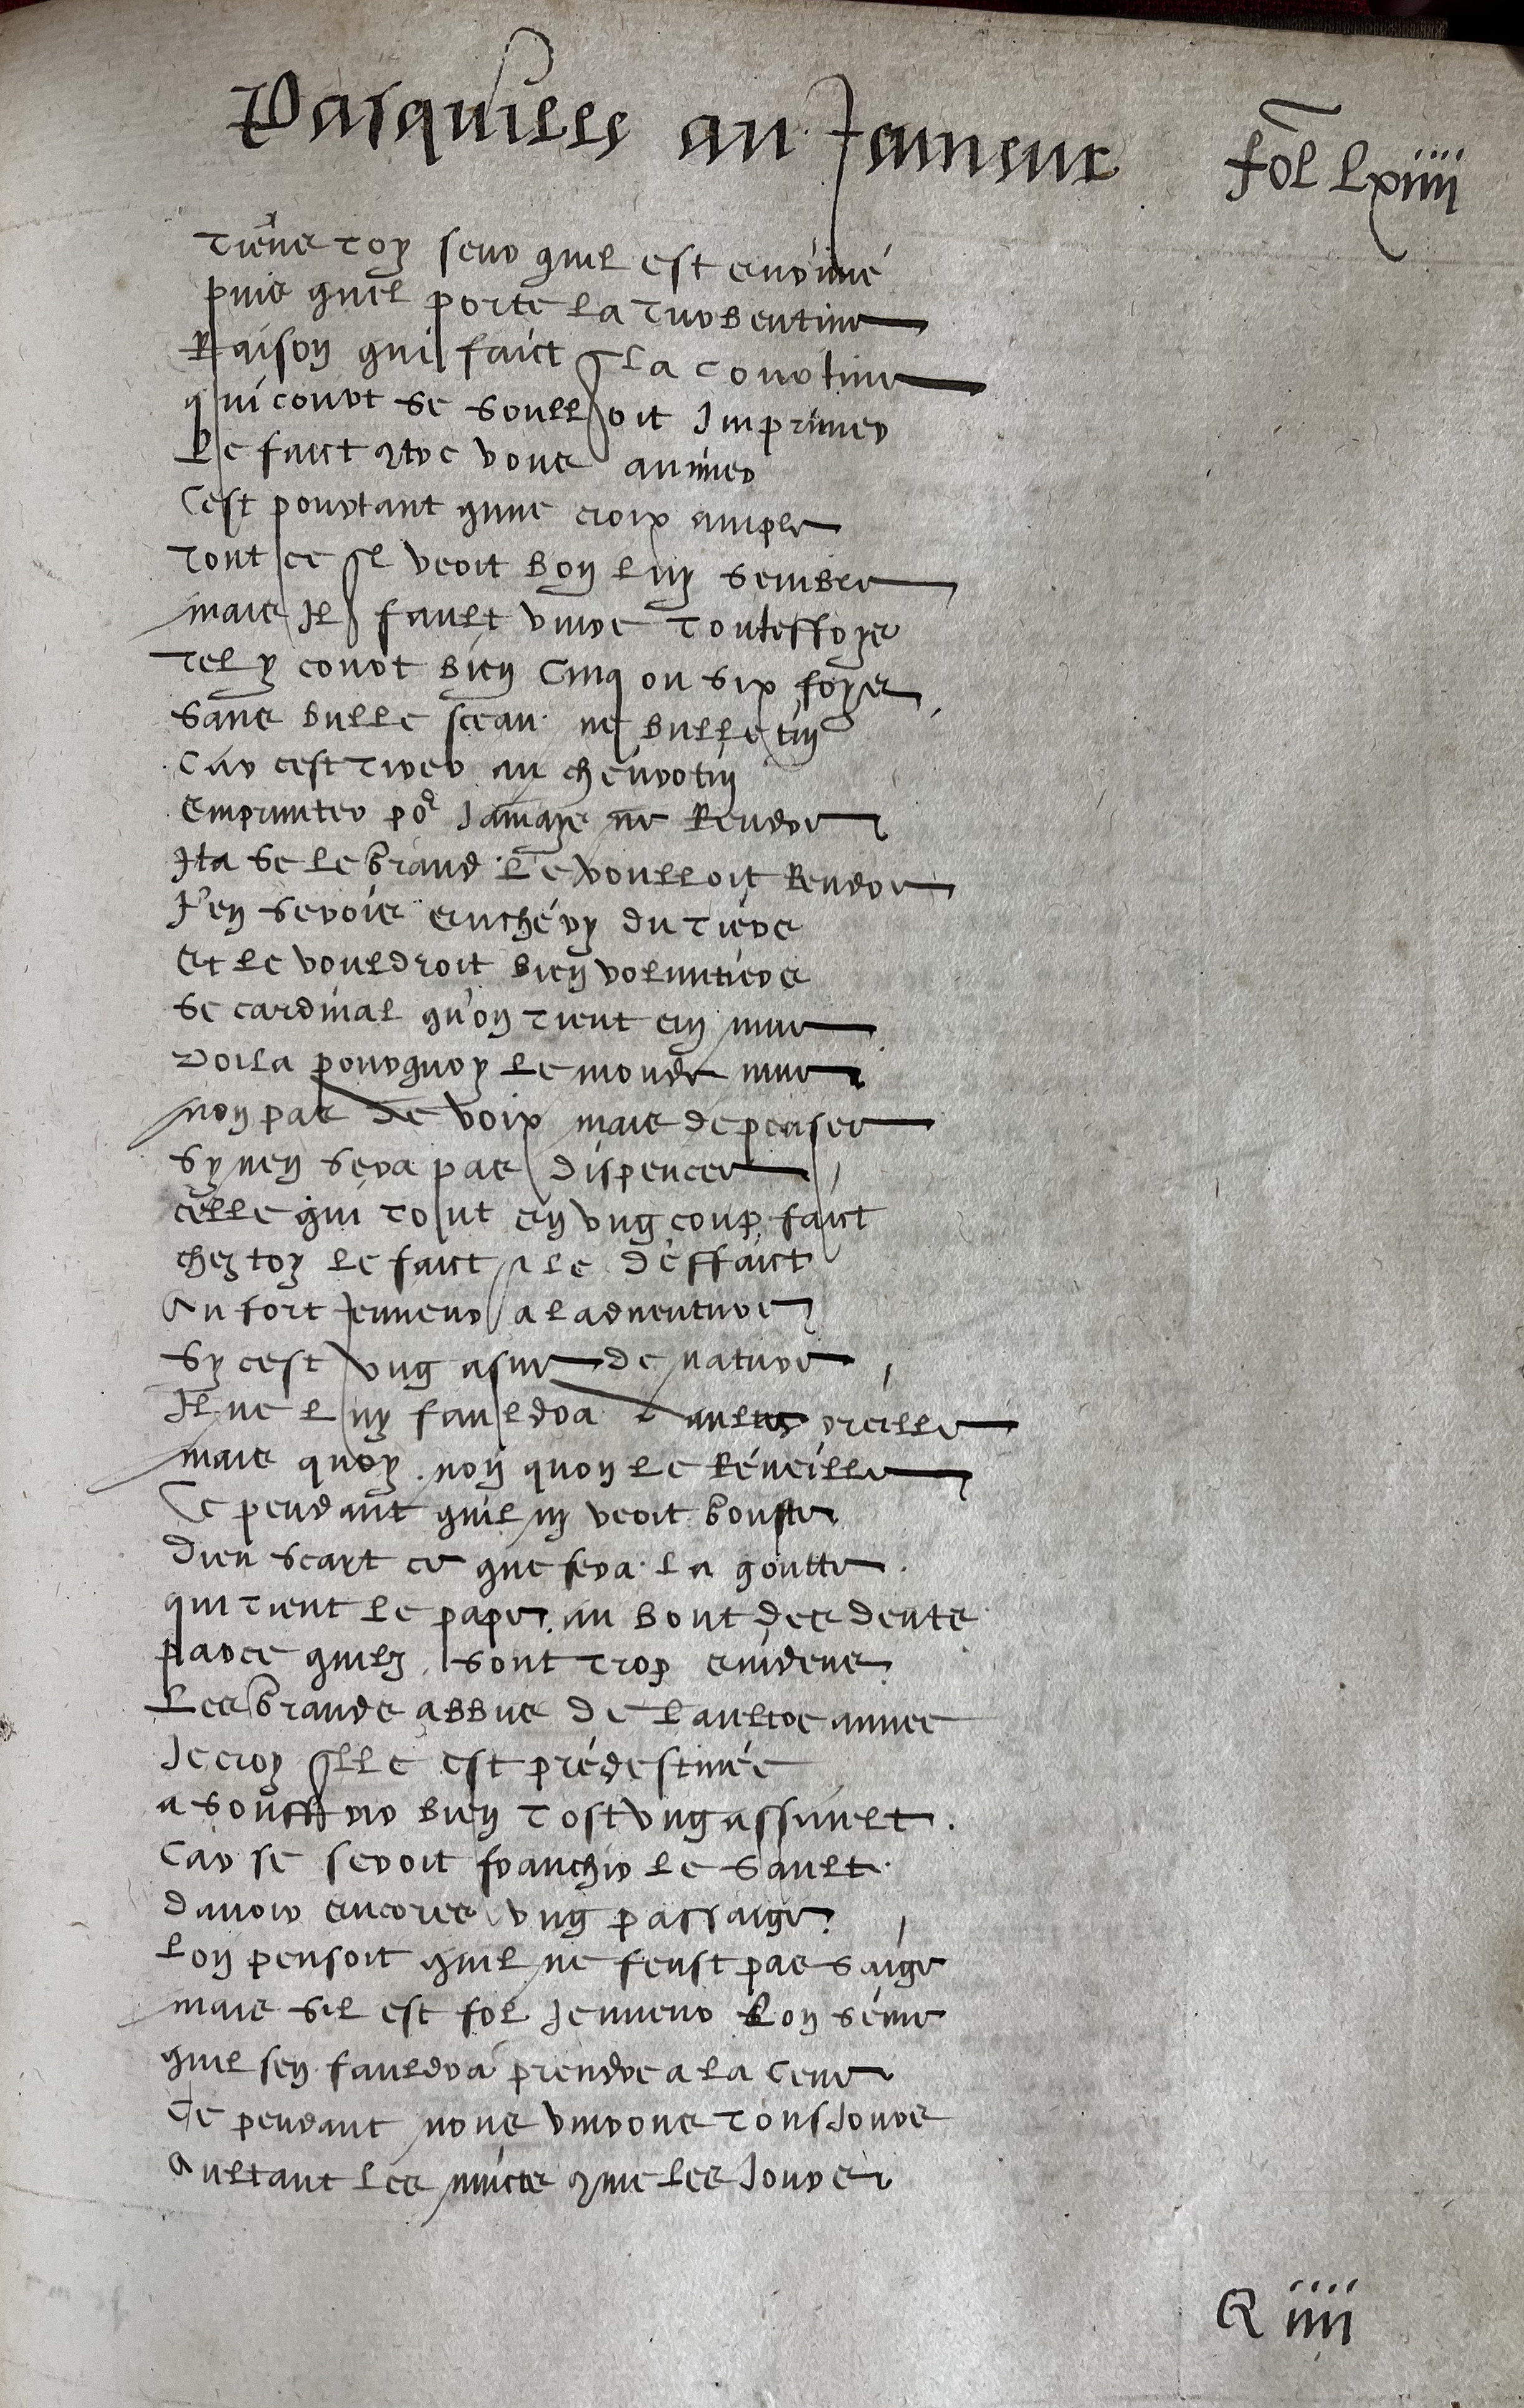 Pasquilles an Jenneur fol lxiiii
Tiens toy seur quil est enrimé
puis quel porte la turbentine
Raison qui faict q la courtine
qui court se soulloit Imprimer
Le faict vous animer
Cest pourtant qune croix ample
Tout ce ql veoit bon luy semble
mais Il fault vivre touteffoys
Tel y court bien Cinq ou six foys
Sans bulle sceau ne bulletin
Car cest tirer au chevrotin
Emprunter po^r Jamays ne Rendre
Ita se le brand le voulloit Rendre
J'en serois enchéry du tiers
Et le vouldroit bien voluntiers
Se cardinal qu'on tient en mue
Voila pourquoy le monde mue
non pas de voix mais de penser
Sy nen sera pas dispencer
celle qui tout en ung coup faict
chez toy le faict le deffaict
Au fort Jenneur a ladventure
Sy cest ung asne de nature
Il ne luy fauldra aultres oreille
mais quoy non quon le Réveille
Ce pendant quil ny veoit goutte
Dieu scait ce que fera la goutte
qui tient le pape au bout des dents
parce quilz sont trop evidens
Les brands abbus de laultre annee
Je croy qlle est prédestinée
a souffrir bien tost ung assault
Car se seroit franchir le sault
davoir encores ung passaige
Lon pensoit quil ne feust pas saige
mais sil est fol Jenneur Lon sème
quil sen fauldra prendre a la Cene
Ce pendant nous vivrons tousJours
Aultant les nuicts que les Jours
R iiii